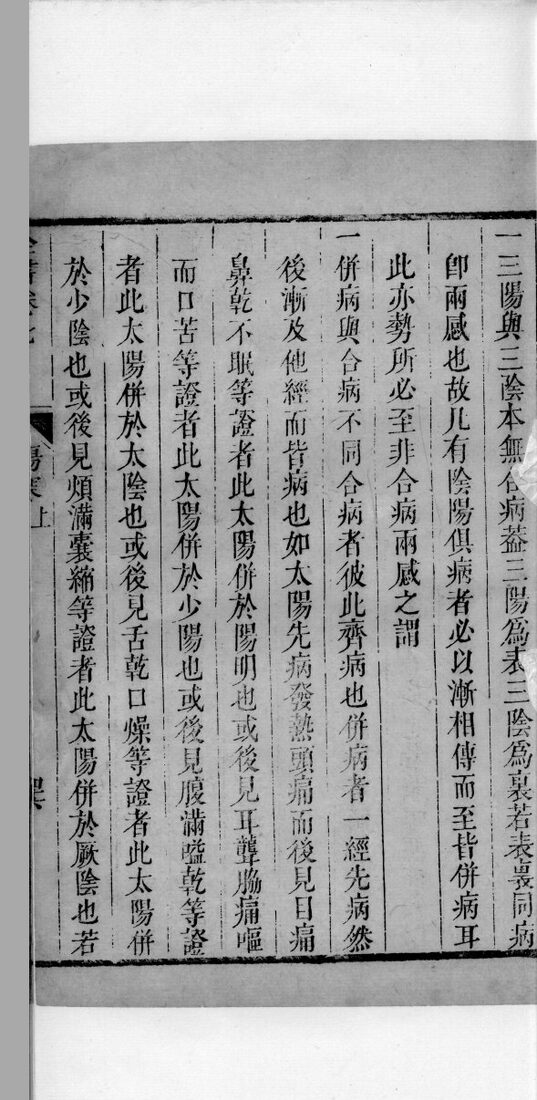 一三陽與三陰本無合病葢三陽爲表三陰爲裏若表裏同病
卽兩感也故凡有陰陽俱病者必以漸相傳而至皆併病耳
此亦勢所必至非合病兩感之謂
一併病與合病不同合病者彼此齊病也併病者一經先病然
後漸及他經而皆病也如太陽先病發熱頭痛而後見目痛
鼻乾不眠等證者此太陽併於陽明也或後見耳聾脇痛嘔
而口苦等證者此太陽併於少陽也或後見腹滿嗌乾等證
者此太陽併於太陰也或後見舌乾口燥等證者此太陽併
於少陰也或後見煩滿囊縮等證者此太陽併於厥陰也若
全書卷七 傷寒上